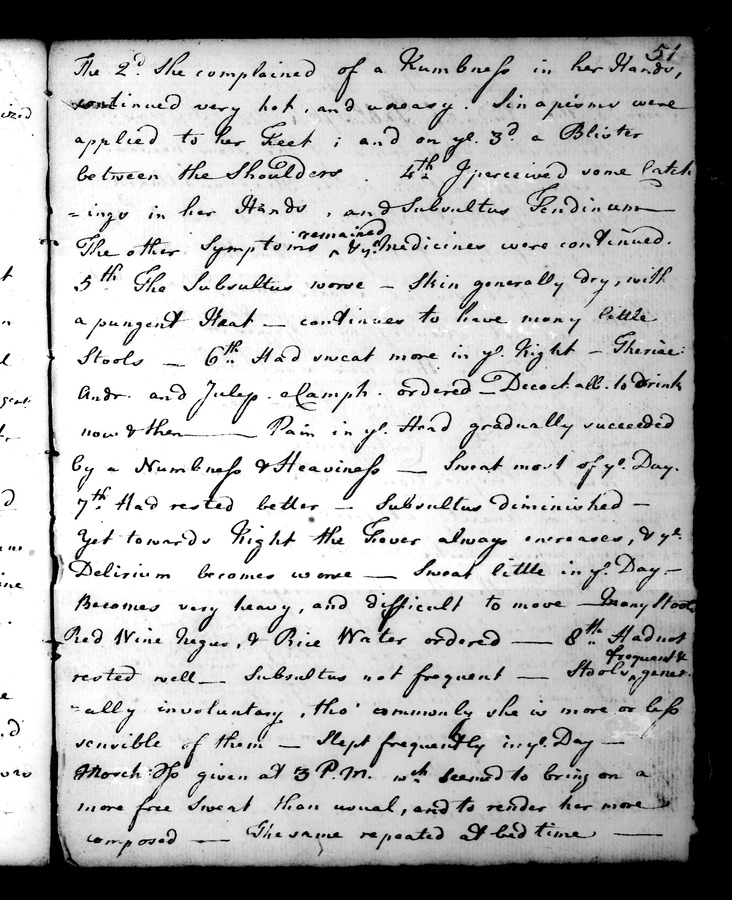 51
The 2d. She complained of a Numbness in her Hands,
continued very hot, and uneasy. Sinapisms were
applied to her Feet; and on ye. 3d. a Blister
between the Shoulders. 4th. I perceived some Catch
=ings in her Hands, and Subsultus Tendinum —
remained
The other Symptoms ^ & ye. Medicines were continued.
5th. The Subsultus worse — Skin generally dry, with
a pungent Heat — continues to have many little
Stools — 6th. Had sweat more in ye. Night — Theriac:
Andr. and Julep. e Camph. ordered — Decoct. alb. to Drink
now & then — Pain in ye. Head gradually succeeded
by a Numbness & Heaviness — Sweat most of ye. Day.
7th. Had rested better — Subsultus diminished —
Yet towards Night the Fever always encreases, & ye.
Delirium becomes worse — Sweat little in ye. Day —
Becomes very heavy, and difficult to move — Many Stools
Red Wine Negus, & Rice Water ordered — 8th. Had not
frequent &
rested well — Subsultus not frequent — Stools ^ gener-
=ally involuntary, tho' commonly she is more or less
sensible of them — Slept frequently in ye. Day —
Mosch: given at 3 P.M. wch. seemed to bring on a
more free Sweat than usual, and to render her more
composed — The same repeated at bed time —
ized